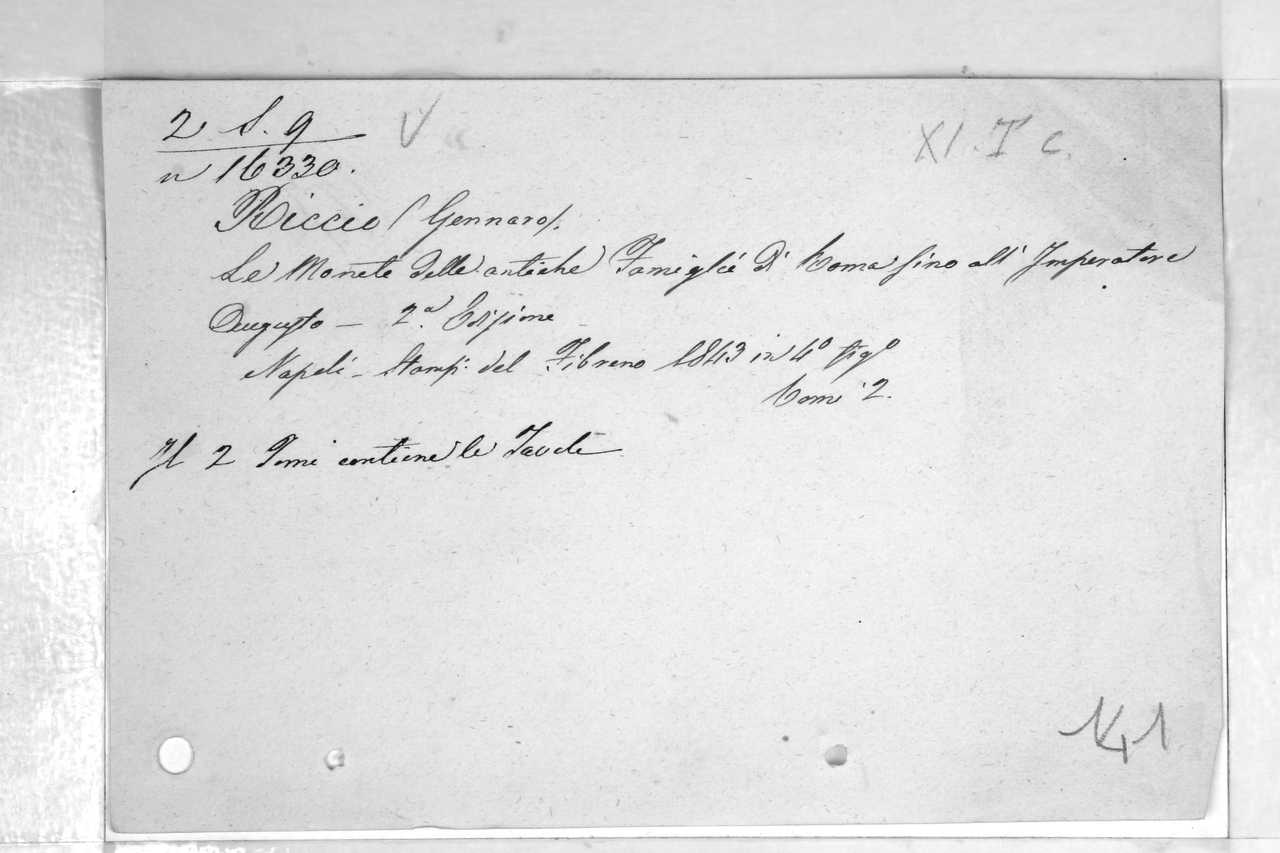 2 S. 9
n 16330.
XI. I c.
Riccio (Gennaro).
Le Monete delle antiche Famiglie di Roma fino all' Imperatore
Augusto — 2ª. Edizione
Napoli - Stamp: del Fibreno 1843 in 4º figº
Tomi 2.
Il 2 Tomi contiene le Tavole